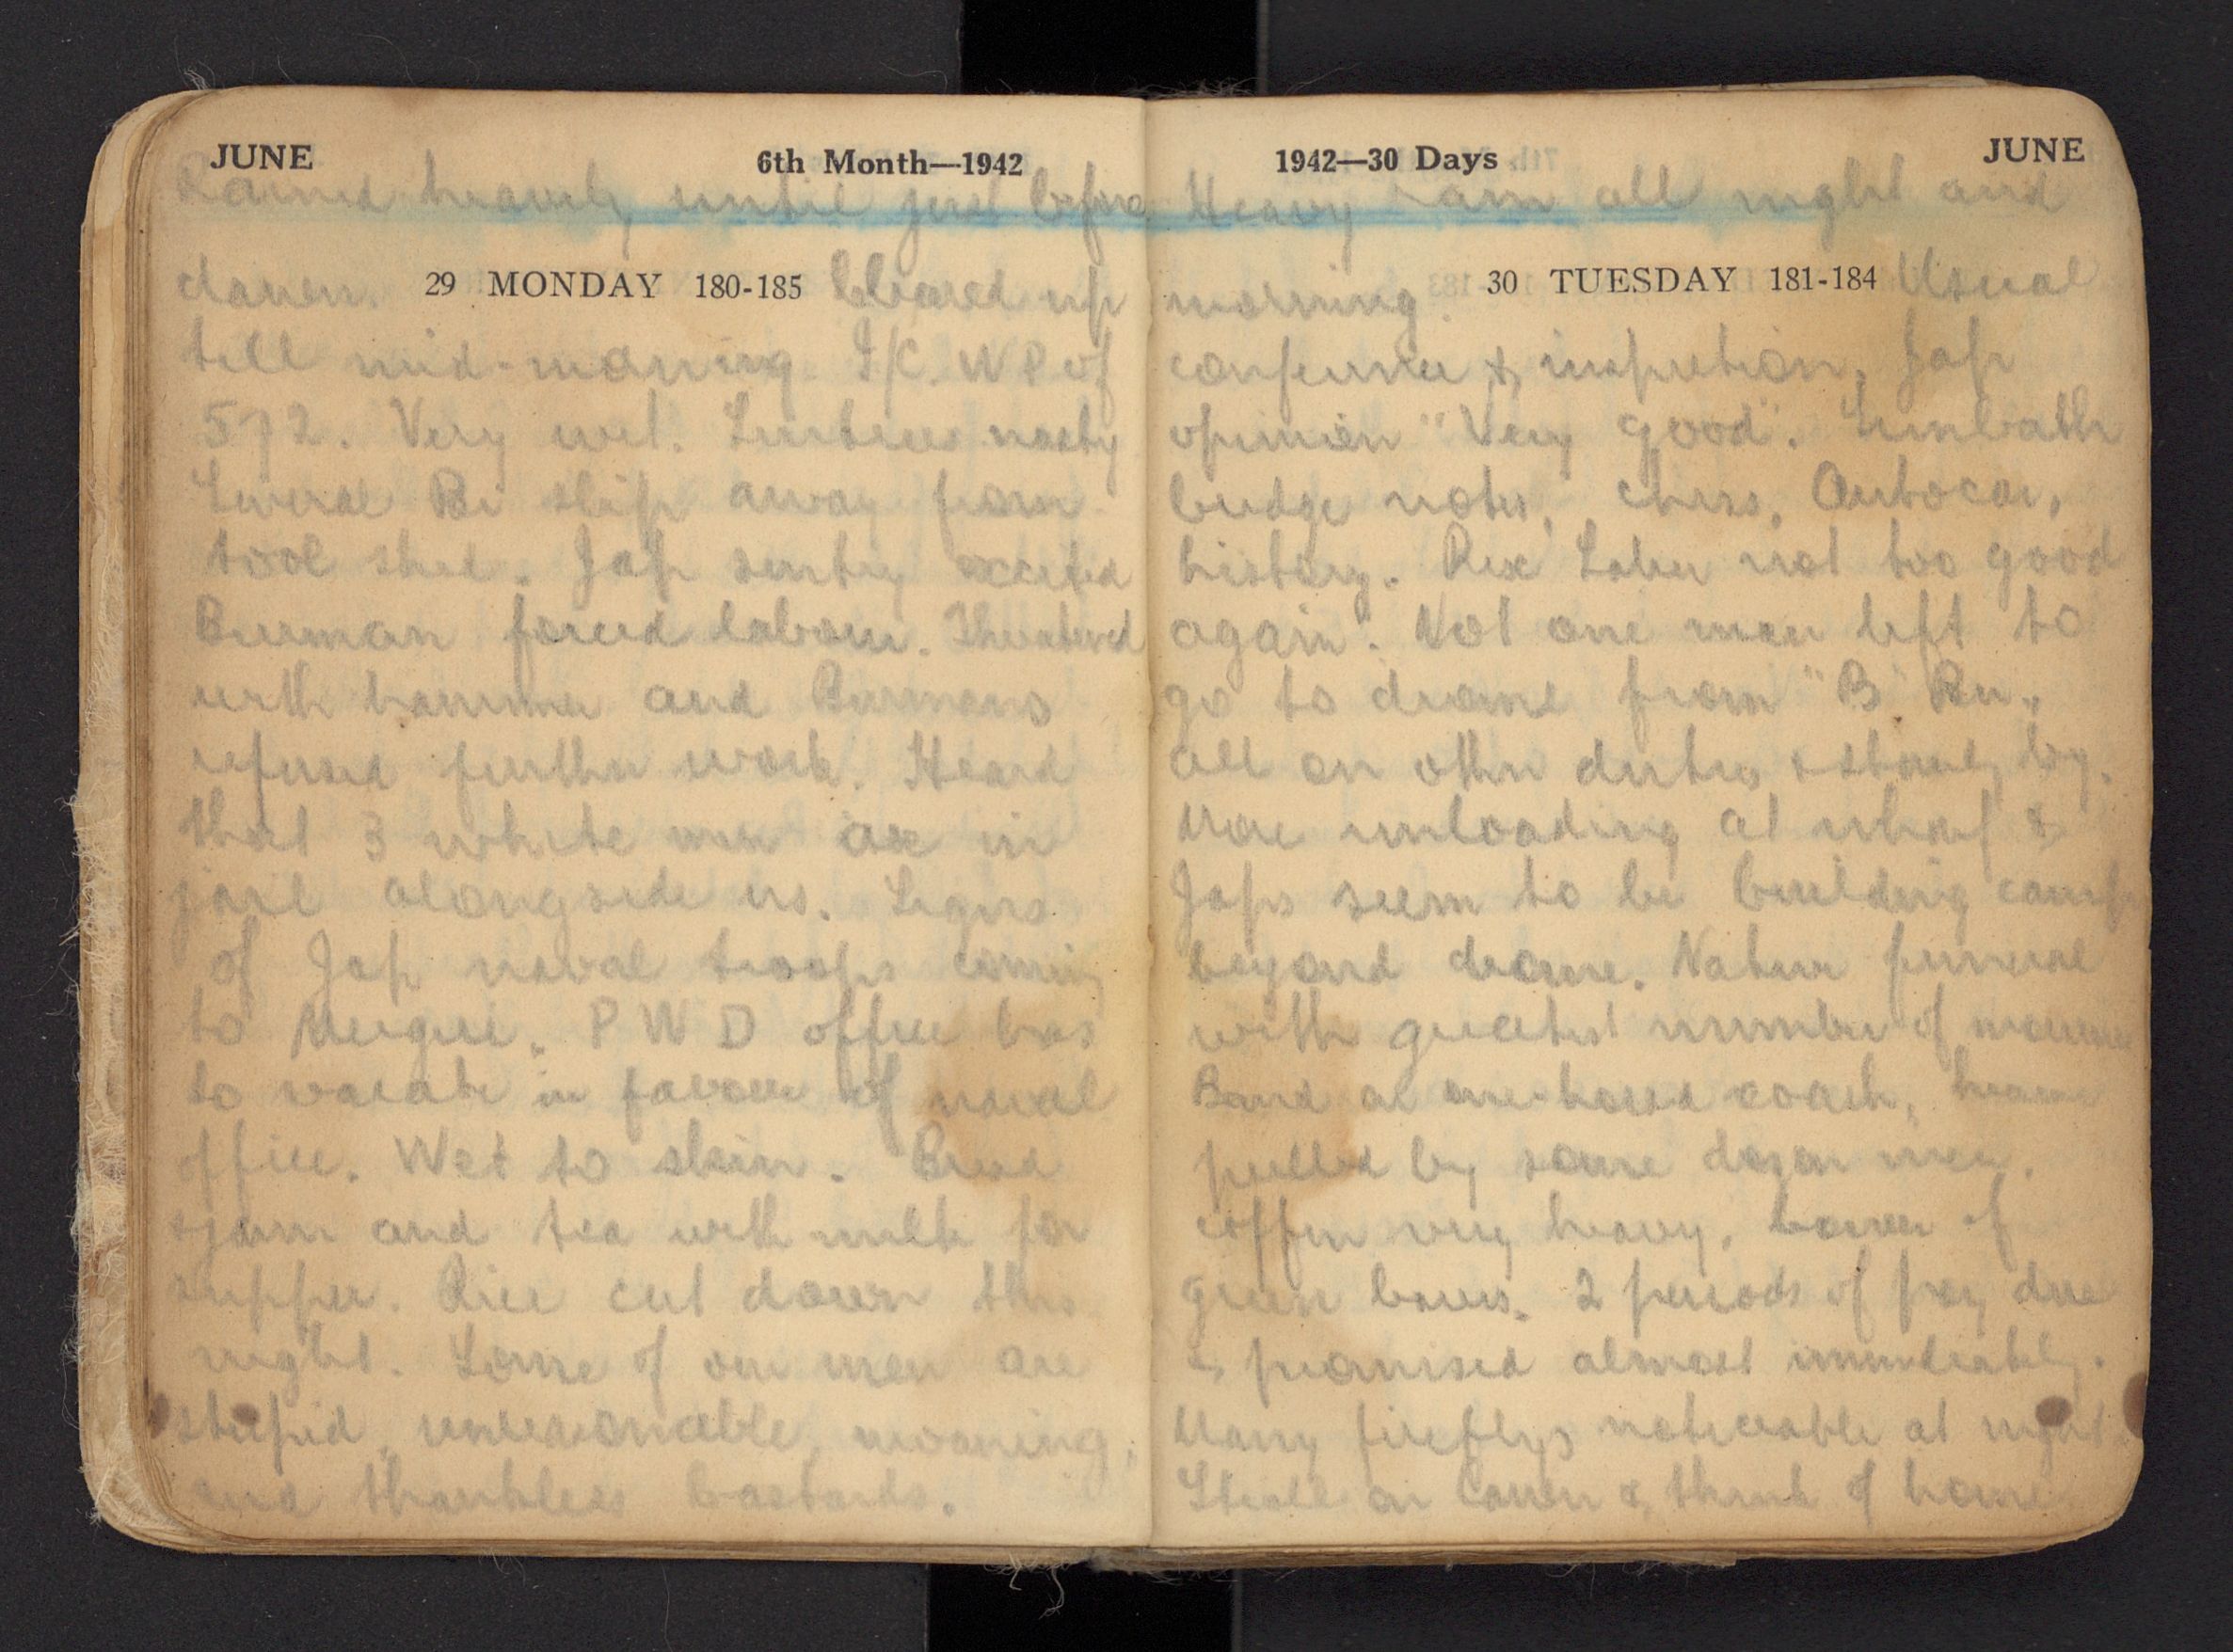 JUNE 6th Month—1942
Rained heavily until just before
dawn. 29 MONDAY 180-185 Cleared up
till mid-morning. I/C. WP of
572. Very wet. Sentries nasty
Several slip away from
tool shed. Jap sentry
Burman forced labour. Threatened
with hammer and Burmans
refused further work. Heard
that 3 white men are in
jail alongside us. Signs
of Jap naval troops coming
to Mergui. P W D office has
to vacate in favour of naval
office. Wet to skin. Bread
& jam and tea with milk for
supper. Rice cut down this
night. Some of our men are
stupid, unreasonable, moaning,
and thankless bastards.
1942—30 Days JUNE
Heavy rain all night and
morning. 30 TUESDAY 181-184 Usual
conference & inspection. Jap
opinion "Very good".
bridge notes, chess, Autocar,
history. Rex not too good
again. Not one man left to
go to drome from "B"
all on other duties & stand by.
More unloading at wharf &
Japs seem to be building camp
beyond drome. Native funeral
with greatest number of mourners
Band on one-horsed coach, hearse
pulled by some dozen men.
coffin very heavy, of
green 2 periods of pay due
& promised almost immediately.
Many fireflys noticeable at night
Stroll on lawn & think of home